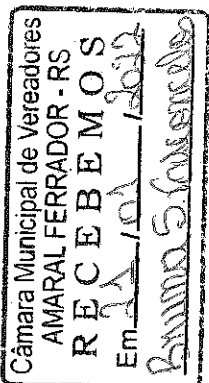 Câmara Municipal de Vereadores
AMARAL FERRADOR - RS
RECEBEMOS
Em / 01 / 2022
Bruna S.